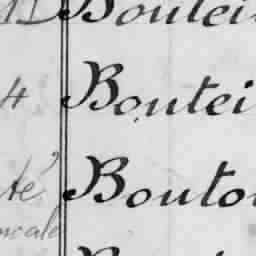 Boutei
4 Boutei
té Bouto
ncale